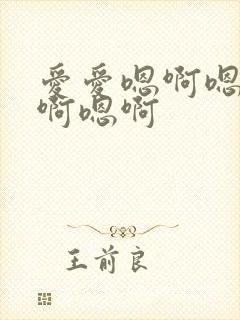 爱爱嗯啊嗯
啊嗯啊
王前良